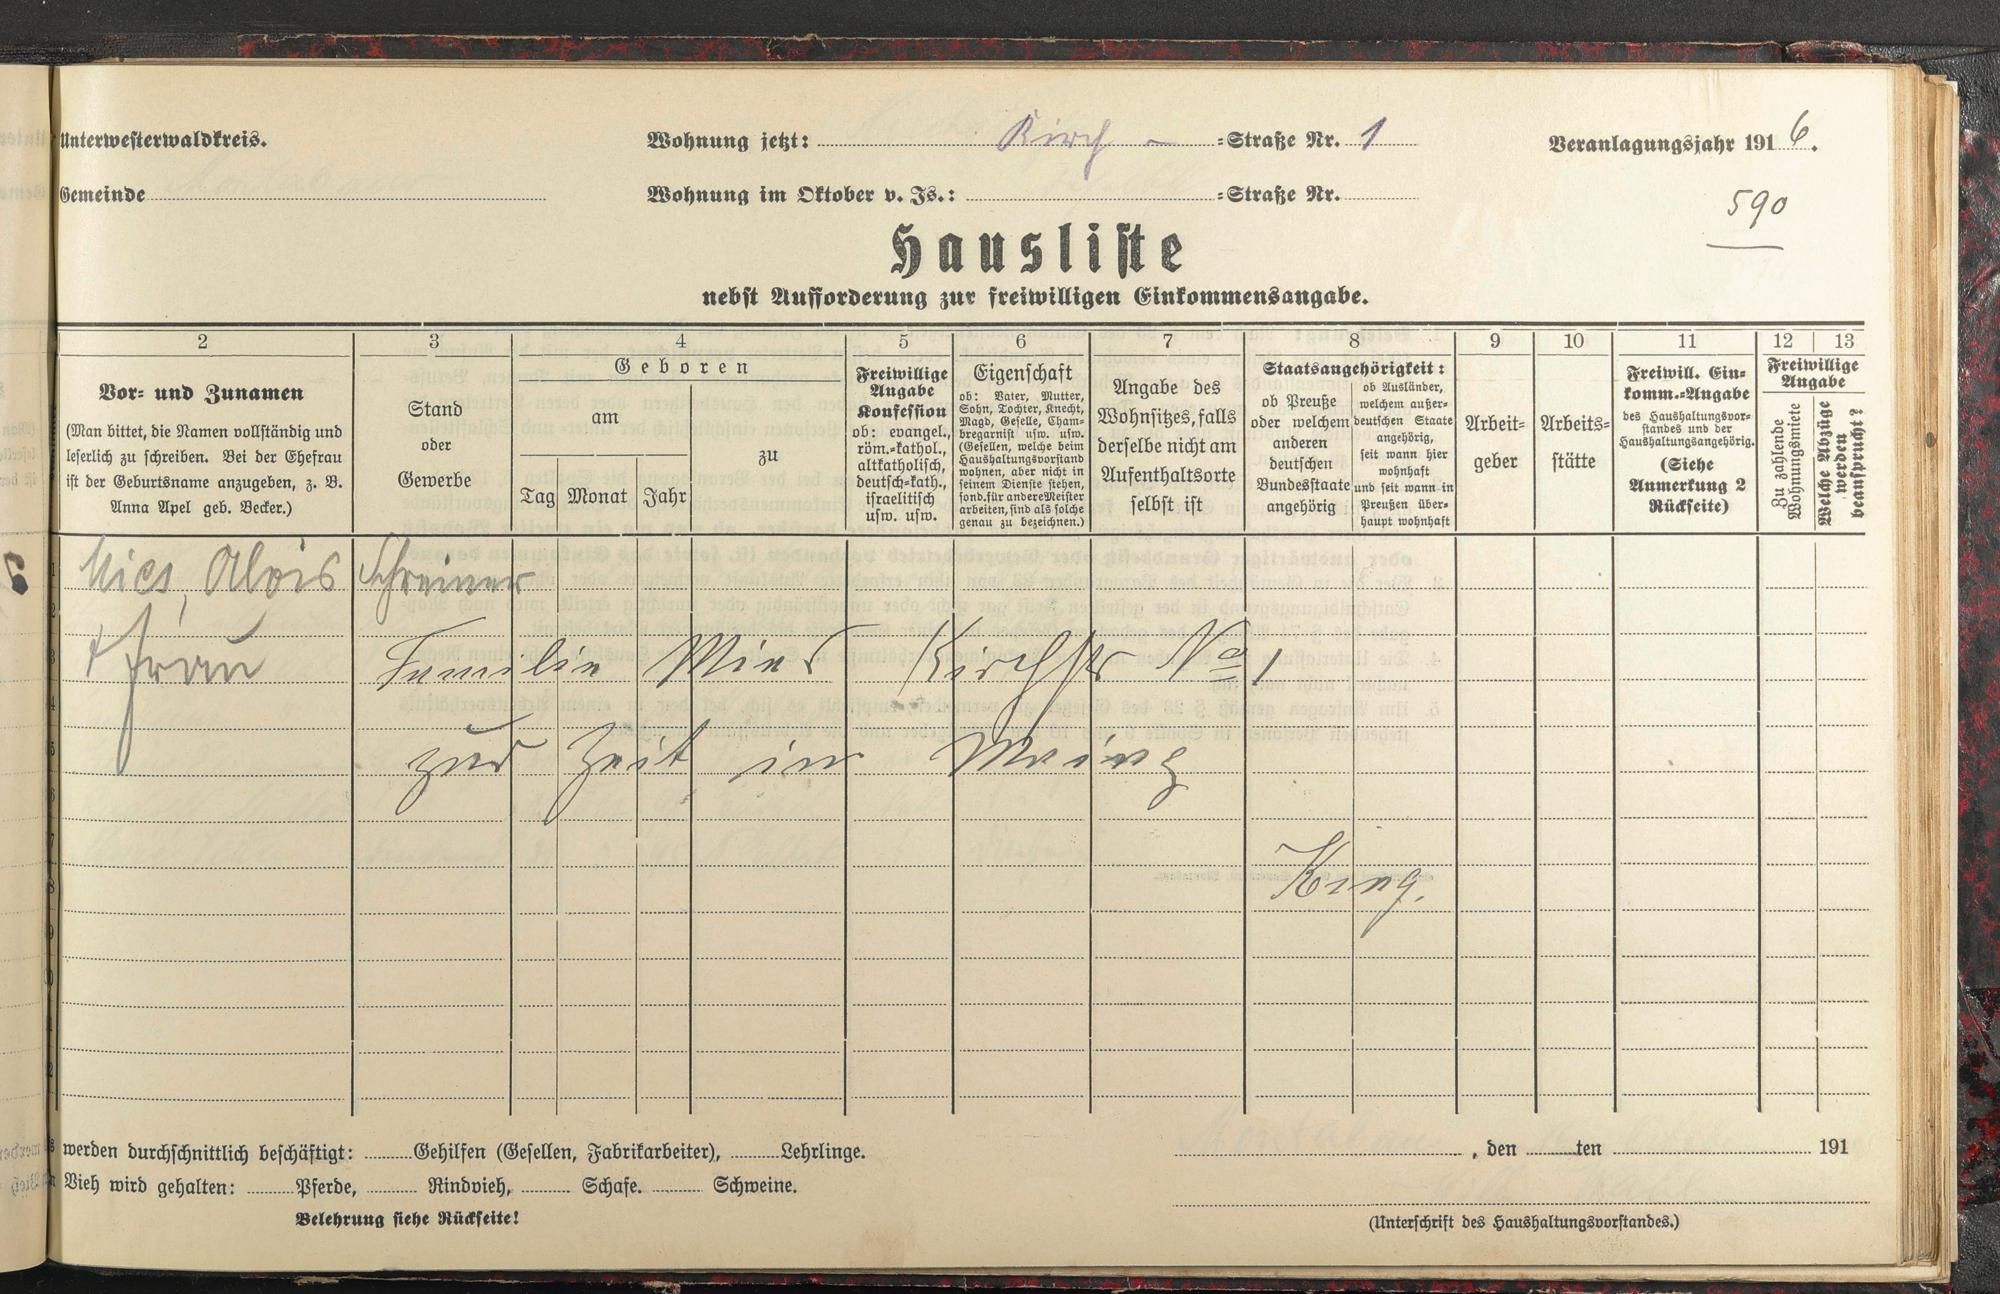 Unterwesterwaldkreis.
Wohnung jetzt: Kirch - =Straße Nr. 1
Veranlagungsjahr 1916.
Gemeinde
Wohnung im Oktober v. Js.: =Straße Nr.
590
Hausliste
nebst Aufforderung zur freiwilligen Einkommensangabe.
2 3 4 5 6 7 8 9 10 11 12 13
Vor- und Zunamen
(Man bittet, die Namen vollständig und
leserlich zu schreiben. Bei der Ehefrau
ist der Geburtsname anzugeben, z. B.
Anna Apel geb. Becker.)
Stand
oder
Gewerbe
Geboren
am
Tag Monat Jahr
zu
Freiwillige
Angabe
Konfession
ob: evangel.,
röm.-kathol.,
altkatholisch,
deutsch-kath.,
israelitisch
usw. usw.
Eigenschaft
ob: Vater, Mutter,
Sohn, Tochter, Knecht,
Magd, Geselle, Cham-
bregarnist usw. usw.
(Gesellen, welche beim
Haushaltungsvorstand
wohnen, aber nicht in
seinem Dienste stehen,
sond. für andere Meister
arbeiten, sind als solche
genau zu bezeichnen.)
Angabe des
Wohnsitzes, falls
derselbe nicht am
Aufenthaltsorte
selbst ist
Staatsangehörigkeit:
ob Preuße
oder welchem
anderen
deutschen
Bundesstaate
angehörig
ob Ausländer,
welchem außer-
deutschen Staate
angehörig,
seit wann hier
wohnhaft
und seit wann in
Preußen über-
haupt wohnhaft
Arbeit-
geber
Arbeits-
stätte
Freiwill. Ein-
komm.-Angabe
des Haushaltungsvor-
standes und der
Haushaltungsangehörig.
(Siehe
Anmerkung 2
Rückseite)
Freiwillige
Angabe
Zu zahlende
Wohnungsmiete
Welche Abzüge
werden
beansprucht?
1 Mies, Alois Schreiner
2
3 + Frau Familie Mies Kirchstr No 1
4
5 zur Zeit in Mainz
6
7
8 King.
9
werden durchschnittlich beschäftigt: Gehilfen (Gesellen, Fabrikarbeiter), Lehrlinge.
, den ten 191
Vieh wird gehalten: Pferde, Rindvieh, Schafe. Schweine.
Belehrung siehe Rückseite!
(Unterschrift des Haushaltungsvorstandes.)